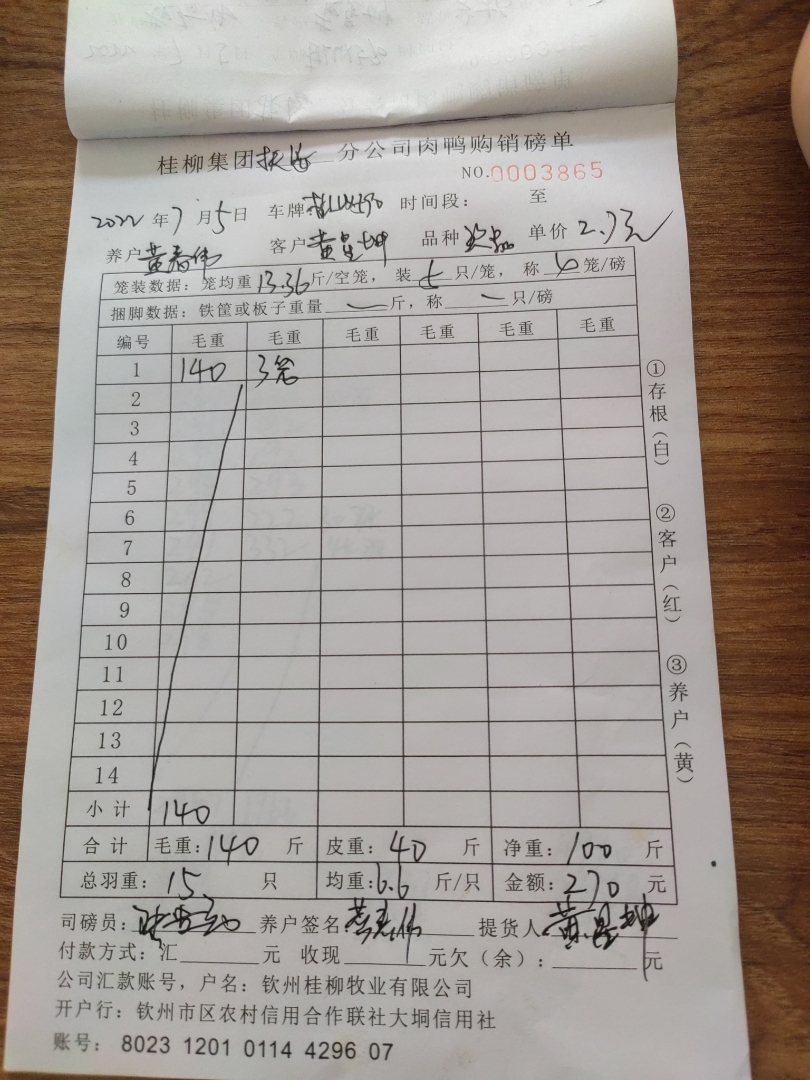 桂柳集团 分公司肉鸭购销磅单
NO.0003865
2022年7月5日 车牌 时间段: 至
养户黄春伟 客户黄昱坤 品种 单价2.7元
笼装数据:笼均重13.36斤/空笼,装5只/笼,称 笼/磅
捆脚数据:铁筐或板子重量一斤,称一只/磅
编号 毛重 毛重 毛重 毛重 毛重 毛重
1 140 3笼
2
3
4
5
6
7
8
9
10
11
12
13
14
小计 140
合计 毛重:140斤 皮重:40斤 净重:100斤
总羽重:15只 均重:6.6斤/只 金额:270元
司磅员: 养户签名黄春伟 提货人黄昱坤
付款方式:汇 元 收现 元欠(余): 元
公司汇款账号,户名:钦州桂柳牧业有限公司
开户行:钦州市区农村信用合作联社大垌信用社
账号: 8023 1201 0114 4296 07
①存根(白)
②客户(红)
③养户(黄)